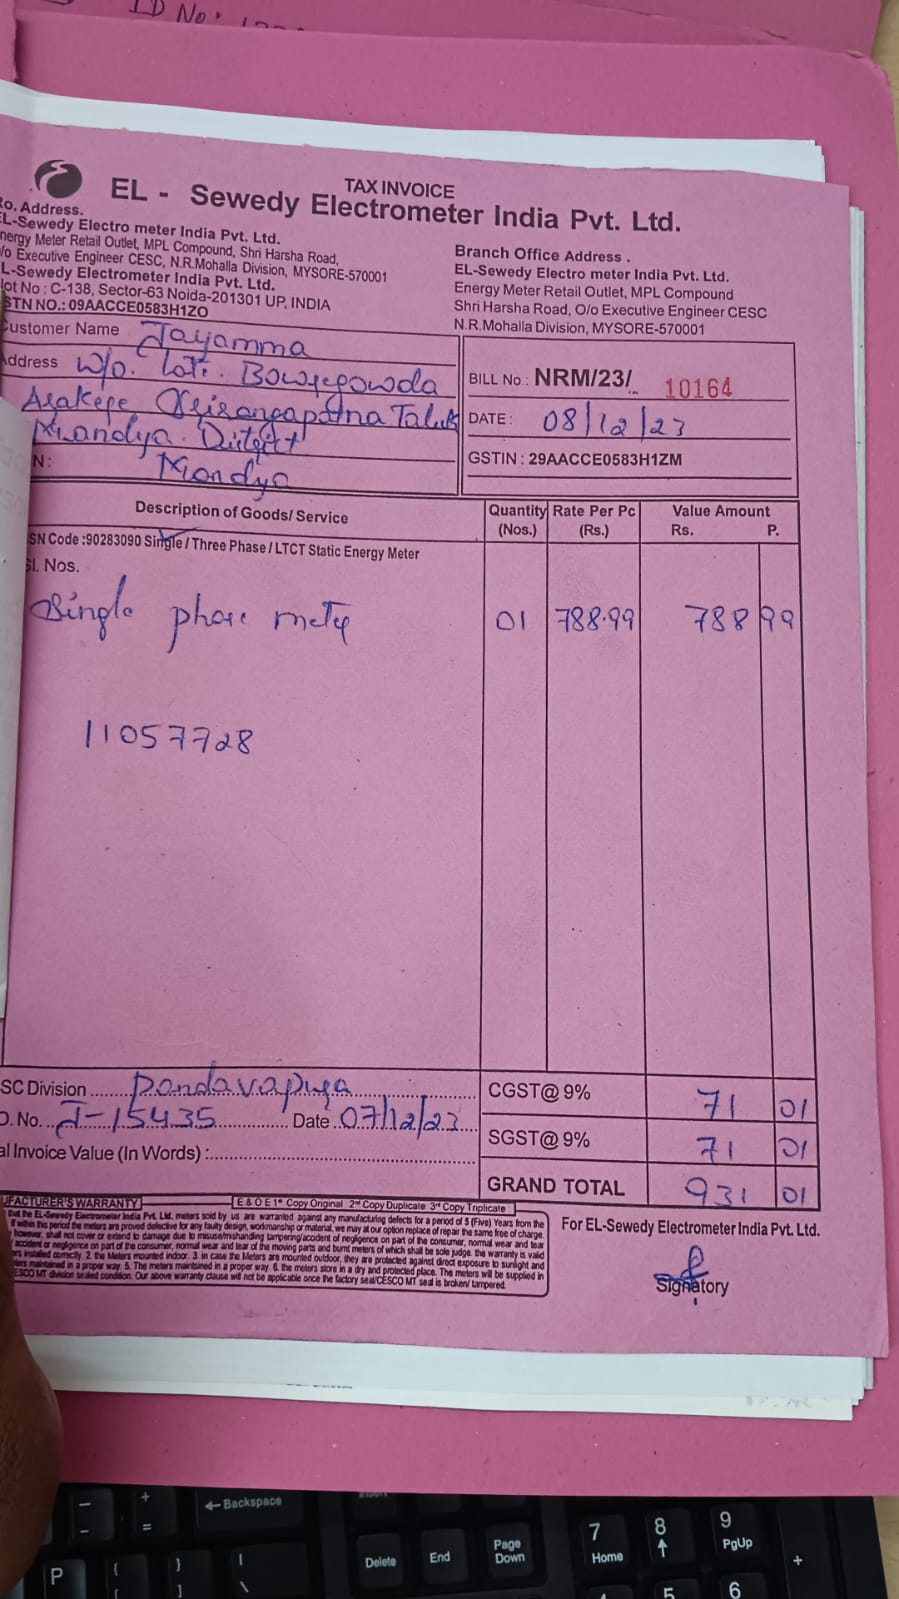 ID No:
TAX INVOICE
EL - Sewedy Electrometer India Pvt. Ltd.
o. Address.
L-Sewedy Electro meter India Pvt. Ltd.
nergy Meter Retail Outlet, MPL Compound, Shri Harsha Road,
/o Executive Engineer CESC, N.R.Mohalla Division, MYSORE-570001
L-Sewedy Electrometer India Pvt. Ltd.
lot No : C-138, Sector-63 Noida-201301 UP, INDIA
STN NO.: 09AACCE0583H1ZO
Branch Office Address .
EL-Sewedy Electro meter India Pvt. Ltd.
Energy Meter Retail Outlet, MPL Compound
Shri Harsha Road, O/o Executive Engineer CESC
N.R.Mohalla Division, MYSORE-570001
ustomer Name Jayamma
ddress W/o. Late. Bowregowda
Arakere Srirangapatna Taluk
Mandya District
N: Mandya
BILL No.: NRM/23/ 10164
DATE: 08/12/23
GSTIN : 29AACCE0583H1ZM
Description of Goods/ Service Quantity (Nos.) Rate Per Pc (Rs.) Value Amount Rs. P.
SN Code :90283090 Single / Three Phase / LTCT Static Energy Meter
Sl. Nos.
Single phase meter 01 788.99 788 99
11057728
SC Division Pandavapura
O. No. J-15435 Date 07/12/23
al Invoice Value (In Words) :
CGST@ 9% 71 01
SGST@ 9% 71 01
GRAND TOTAL 931 01
UFACTURER'S WARRANTY E & O E 1st Copy Original 2nd Copy Duplicate 3rd Copy Triplicate
that the EL-Sewedy Electrometer India Pvt. Ltd. meters sold by us are warranted against any manufacturing defects for a period of 5 (Five) Years from the
If within this period the meters are proved defective for any faulty design, workmanship or material, we may at our option replace of repair the same free of charge.
however, shall not cover or extend to damage due to misuse/mishandling tampering/accident of negligence on part of the consumer, normal wear and tear
accident or negligence on part of the consumer, normal wear and tear of the moving parts and burnt meters of which shall be sole judge. the warranty is valid
rs installed correctly. 2. the Meters mounted indoor. 3. in case the Meters are mounted outdoor, they are protected against direct exposure to sunlight and
ters maintained in a proper way. 5. The meters maintained in a proper way. 6. the meters store in a dry and protected place. The meters will be supplied in
ESCO MT division sealed condition. Our above warranty clause will not be applicable once the factory seal/CESCO MT seal is broken/ tampered.
For EL-Sewedy Electrometer India Pvt. Ltd.
Signatory
Backspace
Delete End Page Down
7 Home 8 9 PgUp +
P 5 6